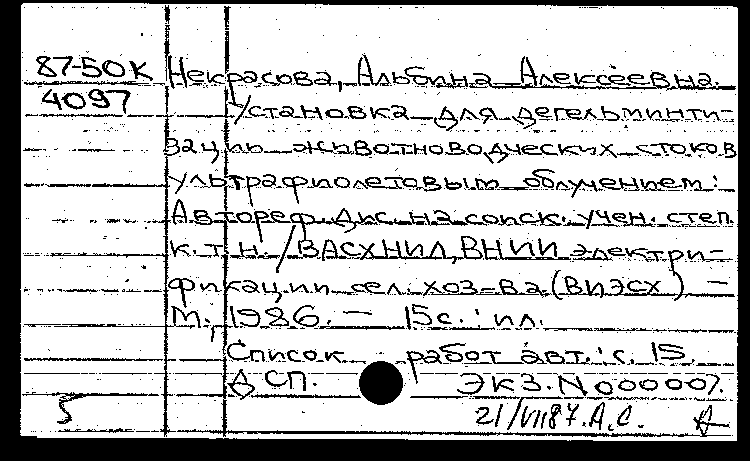 87-50К Некрасова, Альбина Алексеевна.
4097 Установка для дегельминти-
зации животноводческих стоков
ультрафиолетовым облучением:
Автореф. дис. на соиск. учен. степ.
к.т.н. / ВАСХНИЛ, ВНИИ электри-
фикации сел. хоз-ва (ВИЭСХ) -
М., 1986. - 15с.: ил.
Список работ авт.: с. 15.
ДСП. Экз. N 000007.
21/VII87. А.С.